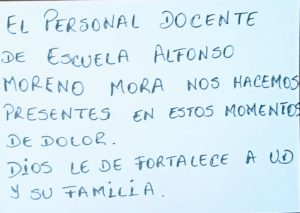 EL PERSONAL DOCENTE
DE ESCUELA ALFONSO
MORENO MORA NOS HACEMOS
PRESENTES EN ESTOS MOMENTOS
DE DOLOR.
DIOS LE DE FORTALECE A UD
Y SU FAMILIA.